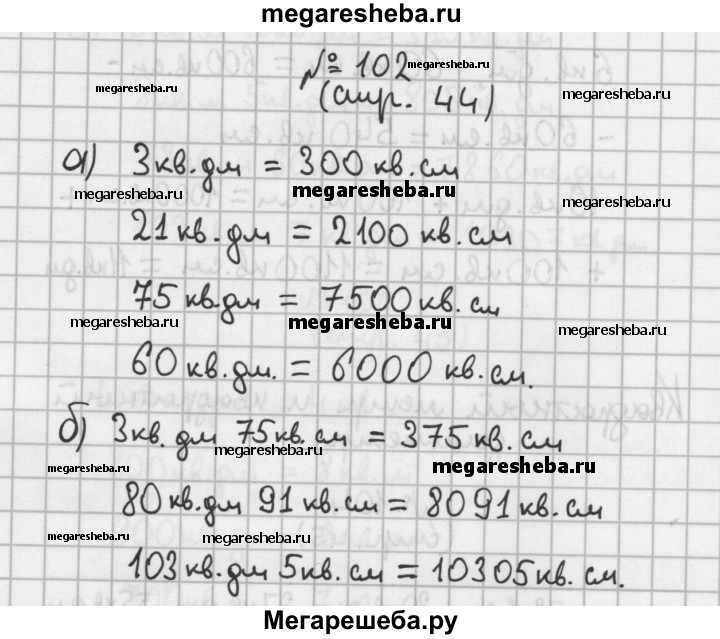 megaresheba.ru
№ 102 megaresheba.ru
megaresheba.ru
megaresheba.ru
(стр. 44)
а) 3 кв.дм = 300 кв.см
megaresheba.ru megaresheba.ru megaresheba.ru
21 кв.дм = 2100 кв.см
75 кв.дм = 7500 кв.см
megaresheba.ru megaresheba.ru megaresheba.ru
60 кв.дм. = 6000 кв.см.
б) 3 кв.дм 75 кв.см = 375 кв.см
megaresheba.ru
megaresheba.ru megaresheba.ru
80 кв.дм 91 кв.см = 8091 кв.см
megaresheba.ru megaresheba.ru
103 кв.дм 5 кв.см = 10305 кв.см.
Мегарешеба.ру